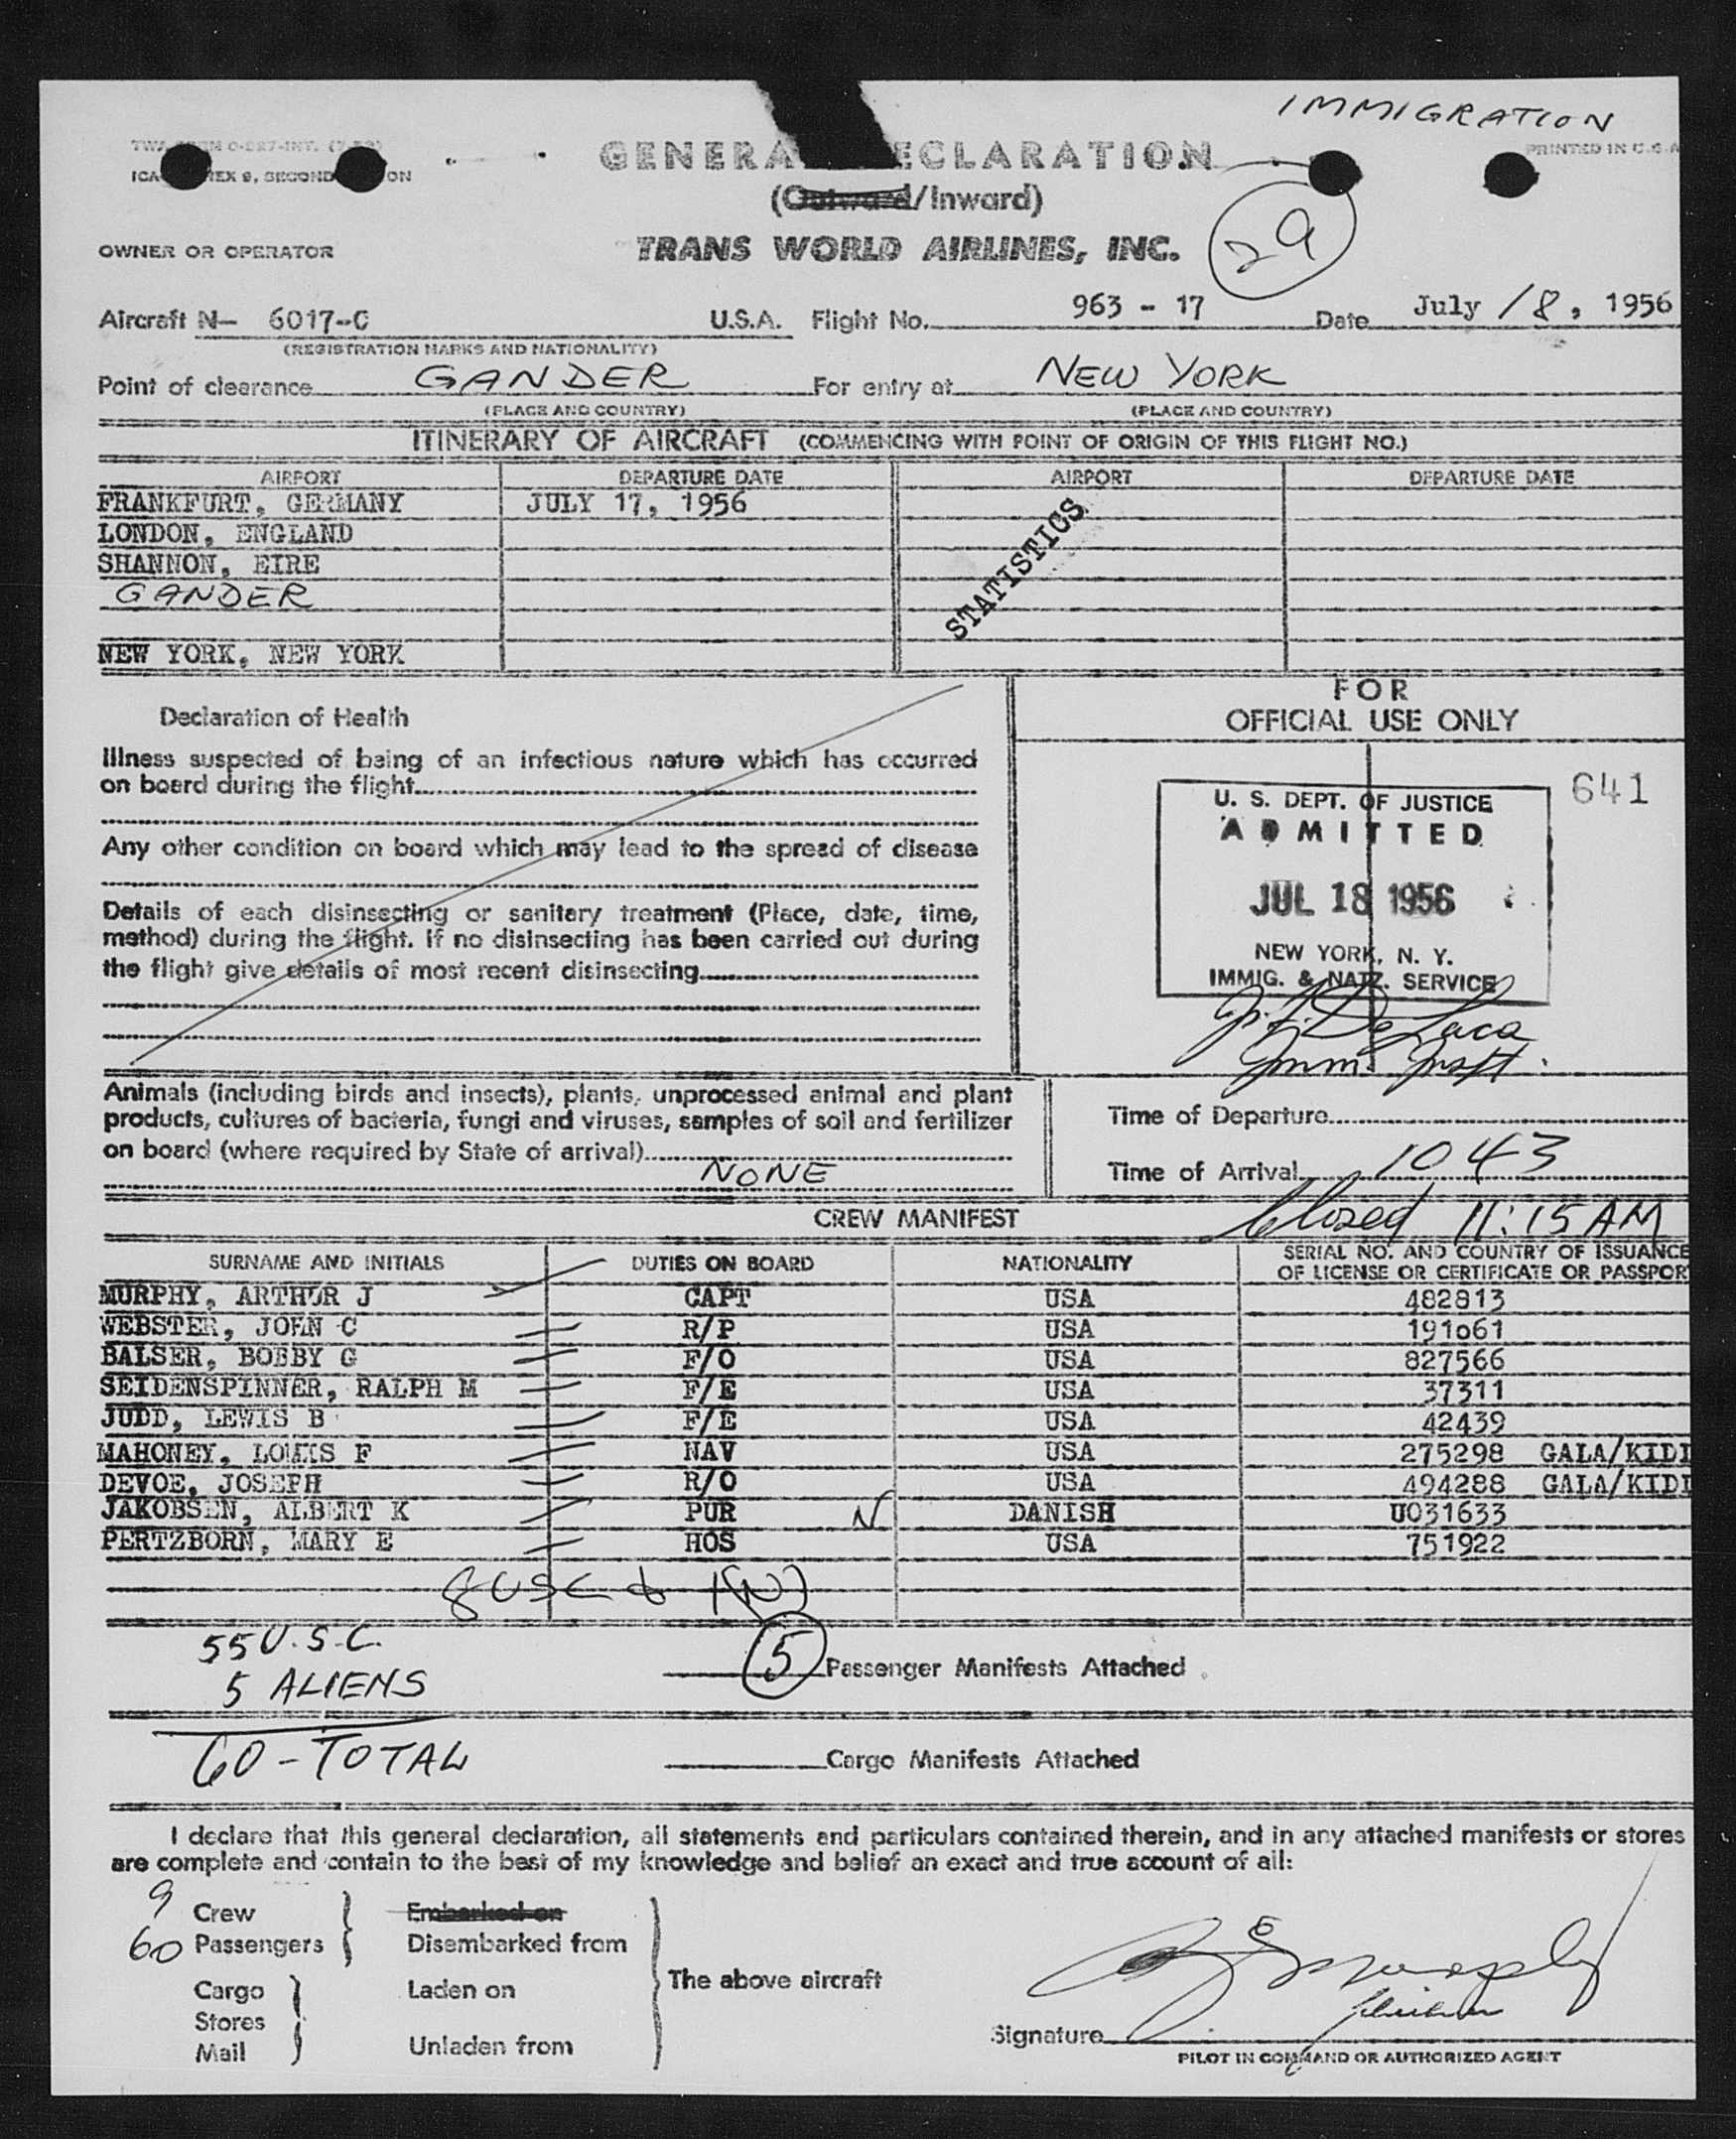 IMMIGRATION
PRINTED IN U.S.A
GENERA ECLARATION
(Outward/Inward)
29
OWNER OR OPERATOR TRANS WORLD AIRLINES, INC.
Aircraft N— 6017-C U.S.A. Flight No. 963 - 17 Date July 18, 1956
(REGISTRATION MARKS AND NATIONALITY)
Point of clearance GANDER For entry at NEW YORK
(PLACE AND COUNTRY) (PLACE AND COUNTRY)
ITINERARY OF AIRCRAFT (COMMENCING WITH POINT OF ORIGIN OF THIS FLIGHT NO.)
AIRPORT DEPARTURE DATE AIRPORT DEPARTURE DATE
FRANKFURT, GERMANY JULY 17, 1956
LONDON, ENGLAND
SHANNON, EIRE
GANDER
NEW YORK, NEW YORK
STATISTICS
Declaration of Health
Illness suspected of being of an infectious nature which has occurred
on board during the flight
Any other condition on board which may lead to the spread of disease
Details of each disinsecting or sanitary treatment (Place, date, time,
method) during the flight. If no disinsecting has been carried out during
the flight give details of most recent disinsecting
FOR
OFFICIAL USE ONLY
641
U. S. DEPT. OF JUSTICE
ADMITTED
JUL 18 1956
NEW YORK, N. Y.
IMMIG. & NATZ. SERVICE
Imm. Inspt.
Animals (including birds and insects), plants, unprocessed animal and plant
products, cultures of bacteria, fungi and viruses, samples of soil and fertilizer
on board (where required by State of arrival)
NONE
Time of Departure
Time of Arrival 1043
Closed 11:15 AM
CREW MANIFEST
SURNAME AND INITIALS DUTIES ON BOARD NATIONALITY SERIAL NO. AND COUNTRY OF ISSUANCE
OF LICENSE OR CERTIFICATE OR PASSPOR
MURPHY, ARTHUR J CAPT USA 482813
WEBSTER, JOHN C R/P USA 191061
BALSER, BOBBY G F/O USA 827566
SEIDENSPINNER, RALPH M F/E USA 37311
JUDD, LEWIS B F/E USA 42439
MAHONEY, LOUIS F NAV USA 275298 GALA/KIDI
DEVOE, JOSEPH R/O USA 494288 GALA/KIDI
JAKOBSEN, ALBERT K PUR N DANISH U031633
PERTZBORN, MARY E HOS USA 751922
8 USC & 1(N)
55 U.S.C.
5 ALIENS
60 - TOTAL
5 Passenger Manifests Attached
Cargo Manifests Attached
I declare that this general declaration, all statements and particulars contained therein, and in any attached manifests or stores
are complete and contain to the best of my knowledge and belief an exact and true account of all:
9 Crew Embarked on
60 Passengers Disembarked from
The above aircraft
Cargo Laden on
Stores
Mail Unladen from
Signature
PILOT IN COMMAND OR AUTHORIZED AGENT